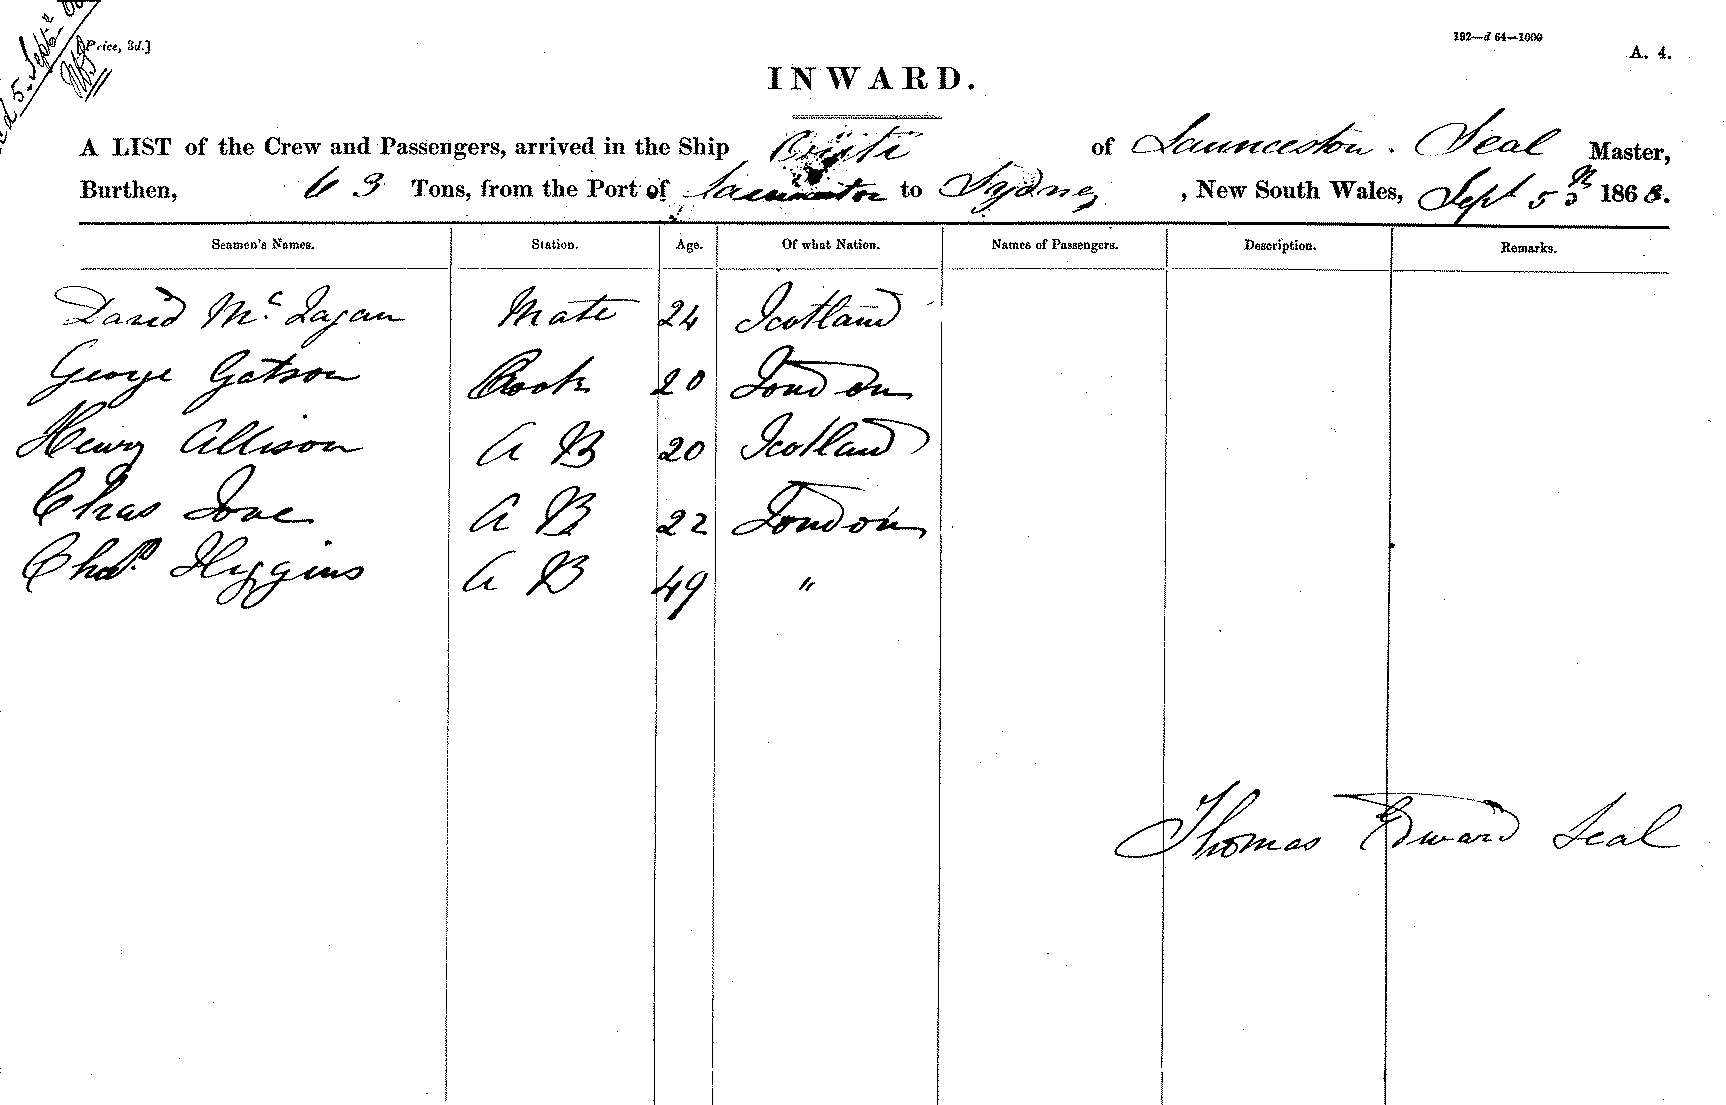 5. Sept.
[Price, 3d.]
192—d 64—1000
A. 4.
INWARD.
A LIST of the Crew and Passengers, arrived in the Ship of Launceston. Seal Master,
Burthen, 63 Tons, from the Port of Launceston to Sydney, New South Wales, Sept 5th 1868.
Seamen's Names. Station. Age. Of what Nation. Names of Passengers. Description. Remarks.
David Mc Lagan Mate 24 Scotland
George Gatson Cook 20 London
Henry Allison A B 20 Scotland
Chas Love A B 22 London
Chas. Higgins A B 49 "
Thomas Edward Seal